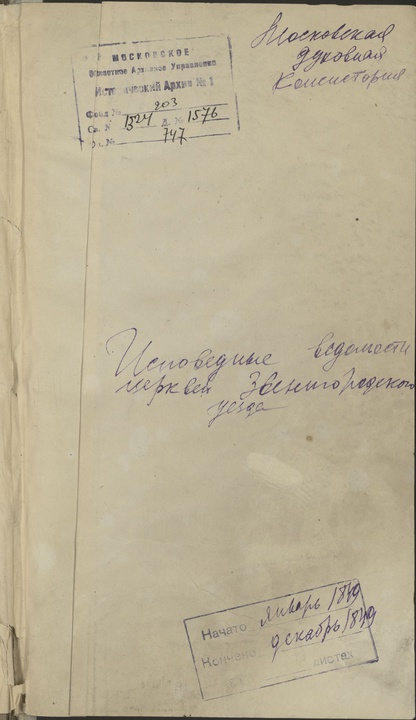 МОСКОВСКОЕ
Областное Архивное Управление
Исторический Архив № 1
Фонд № 203
Св. № 1324 д. № 1576
Оп. № 747
Московская
духовная
Консистория
Исповедные ведомости
церквей Звенигородского
уезда
Начато январь 1849
Кончено декабрь 1849
листах